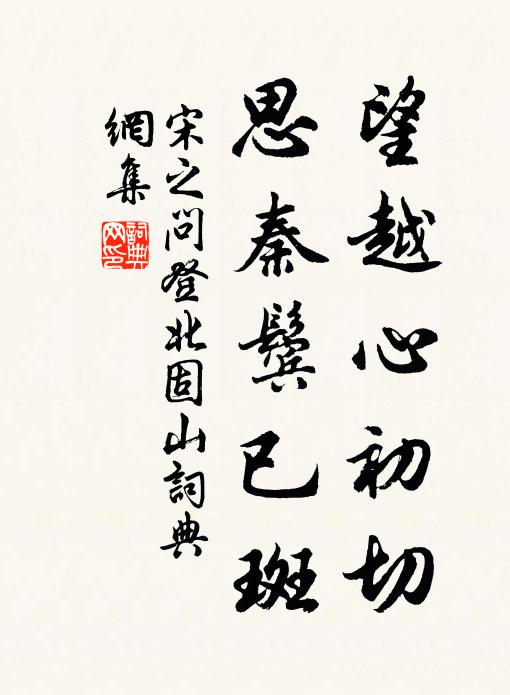 望越心初切
思秦鬓已斑
宋之问登北固山詞典
網集
詞典
网印